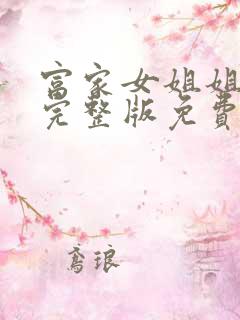 富家女姐姐
完整版免费
鸢琅